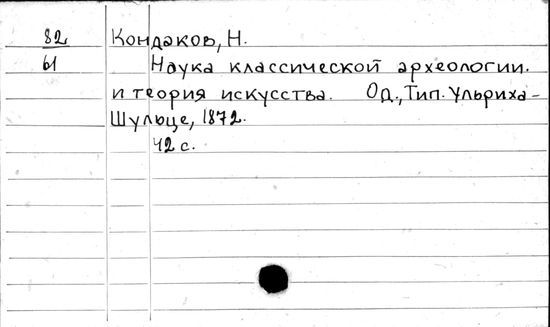 82 Кондаков, Н.
61 Наука классической археологии.
и теория искусства. Од., Тип. Ульриха-
Шульце, 1872.
42 с.